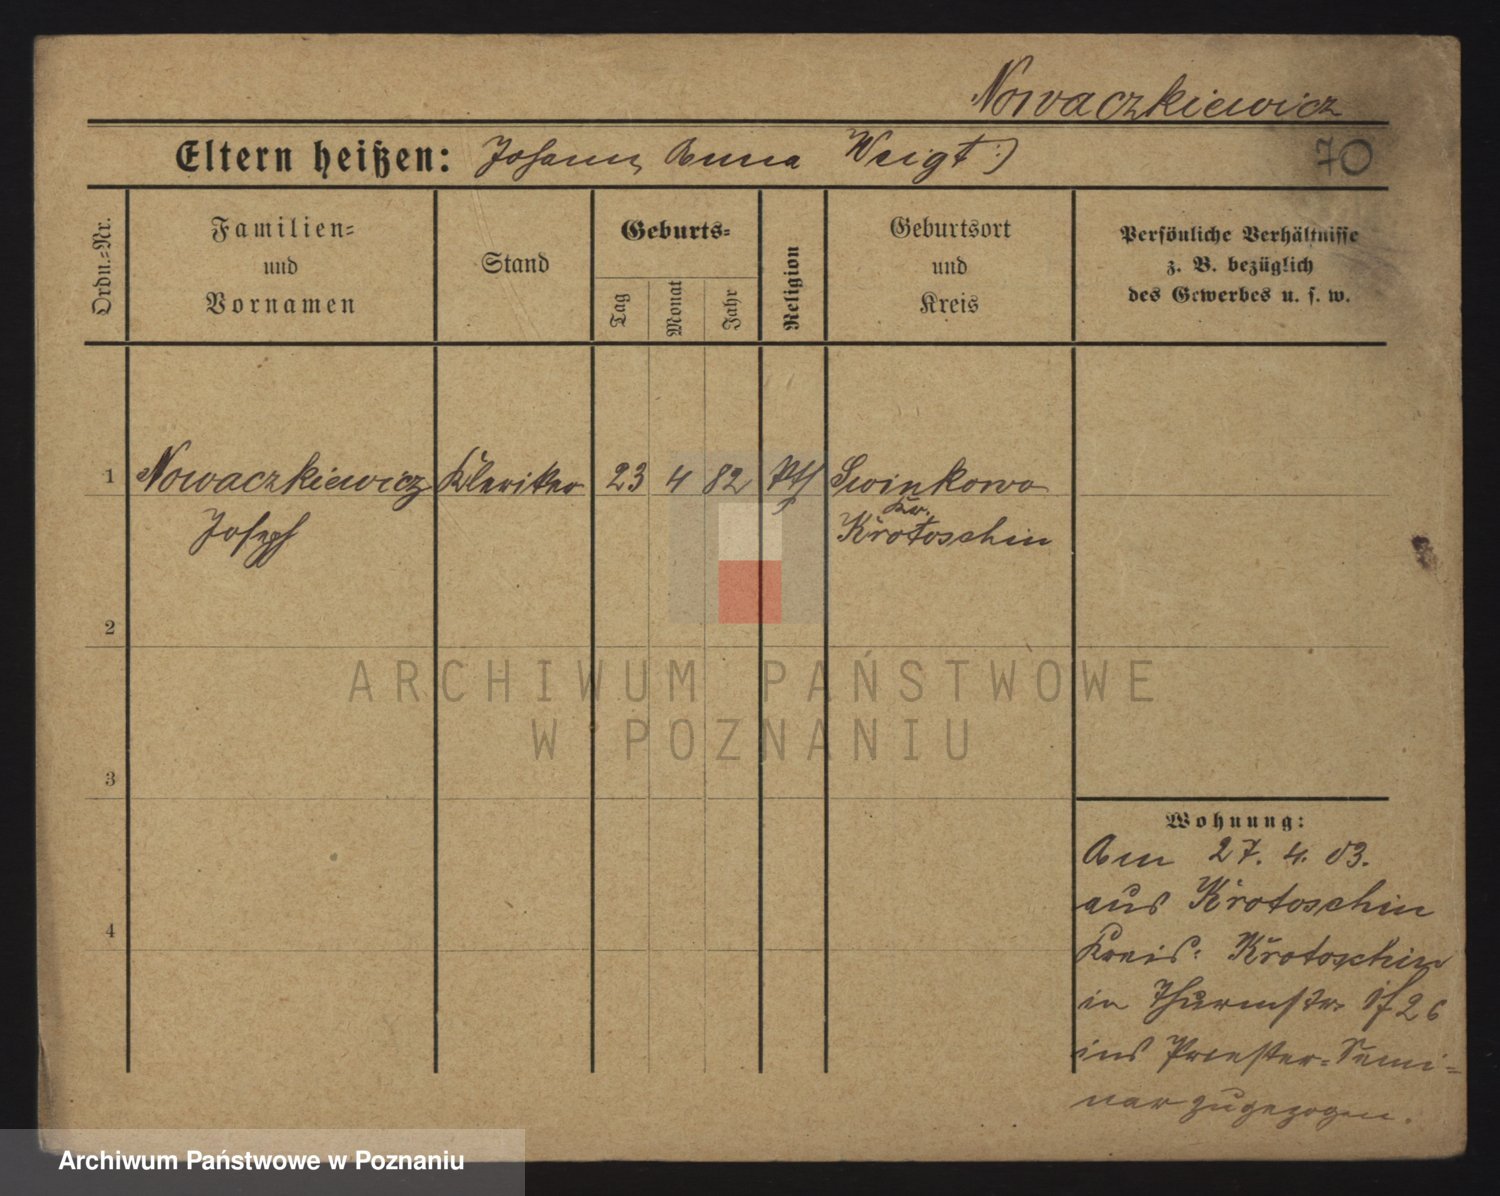 Nowaczkiewicz
Eltern heißen: Johann Anna Weigt :)
70
Ordn.=Nr.
Familien=
und
Vornamen
Stand
Geburts=
Tag
Monat
Jahr
Religion
Geburtsort
und
Kreis
Persönliche Verhältnisse
z. B. bezüglich
des Gewerbes u. s. w.
1 Nowaczkiewicz Kleriker 23 4 82 kth Swinkowo
Kr.
Joseph Krotoschin
2
ARCHIWUM PAŃSTWOWE
W POZNANIU
3
Wohnung:
Am 27. 4. 03.
aus Krotoschin
Kreis: Krotoschin
in Thurmstr. 26
ins Priester=Semi=
nar zugezogen.
4
Archiwum Państwowe w Poznaniu